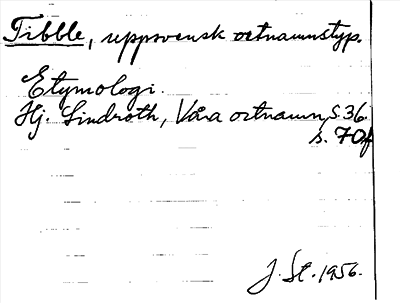 Tibble, uppsvensk ortnamnstyp.
Etymologi.
Hj. Lindroth, Våra ortnamn, S. 36.
s. 70f
J. St. 1956.